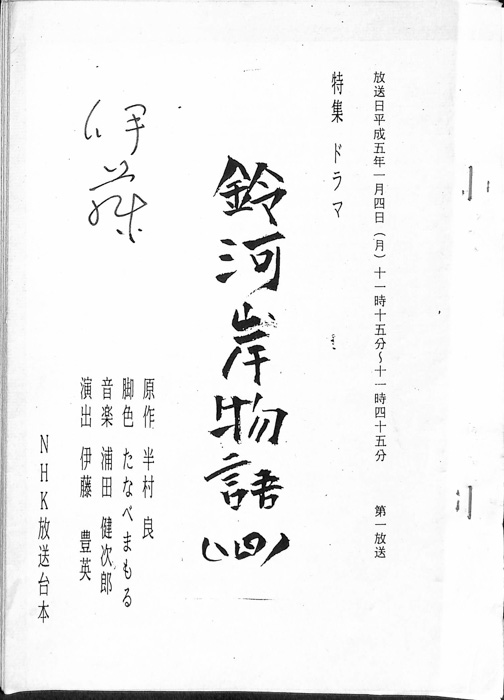 放送日平成五年一月四日（月）十一時十五分～十一時四十五分　第一放送
特集 ドラマ
鈴河岸物語（四）
原作 半村 良
脚色 たなべまもる
音楽 浦田 健次郎
演出 伊藤 豊英
伊藤
NHK放送台本